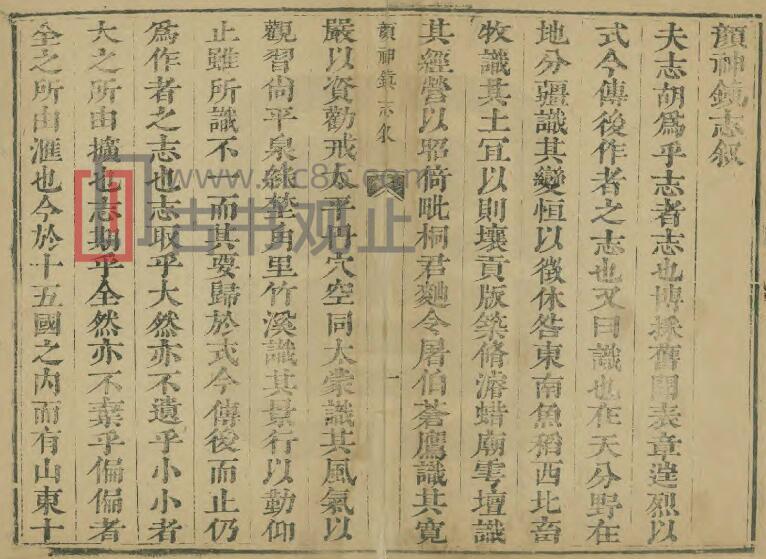 顏神鎮志叙
夫志胡為乎志者志也博採舊聞表章遑烈以
式今傳後作者之志也又曰識也在天分野在
地分疆識其變恒以徵休咎東南魚稻西北畜
牧識其土宜以則壤貢版築脩濬蜡廟雩壇識
其經營以昭倚毗桐君麹令屠伯蒼鷹識其寬
顏神鎮志叙 一
嚴以資勸戒太平丹穴空同太蒙識其風氣以
觀習尚平泉綠埜角里竹溪識其景行以勤仰
止雖所識不一而其要歸於式今傳後而止仍
為作者之志也志取乎大然亦不遺乎小小者
大之所由擴也志期乎全然亦不棄乎偏偏者
全之所由滙也今於十五國之內而有山東十
古书观止